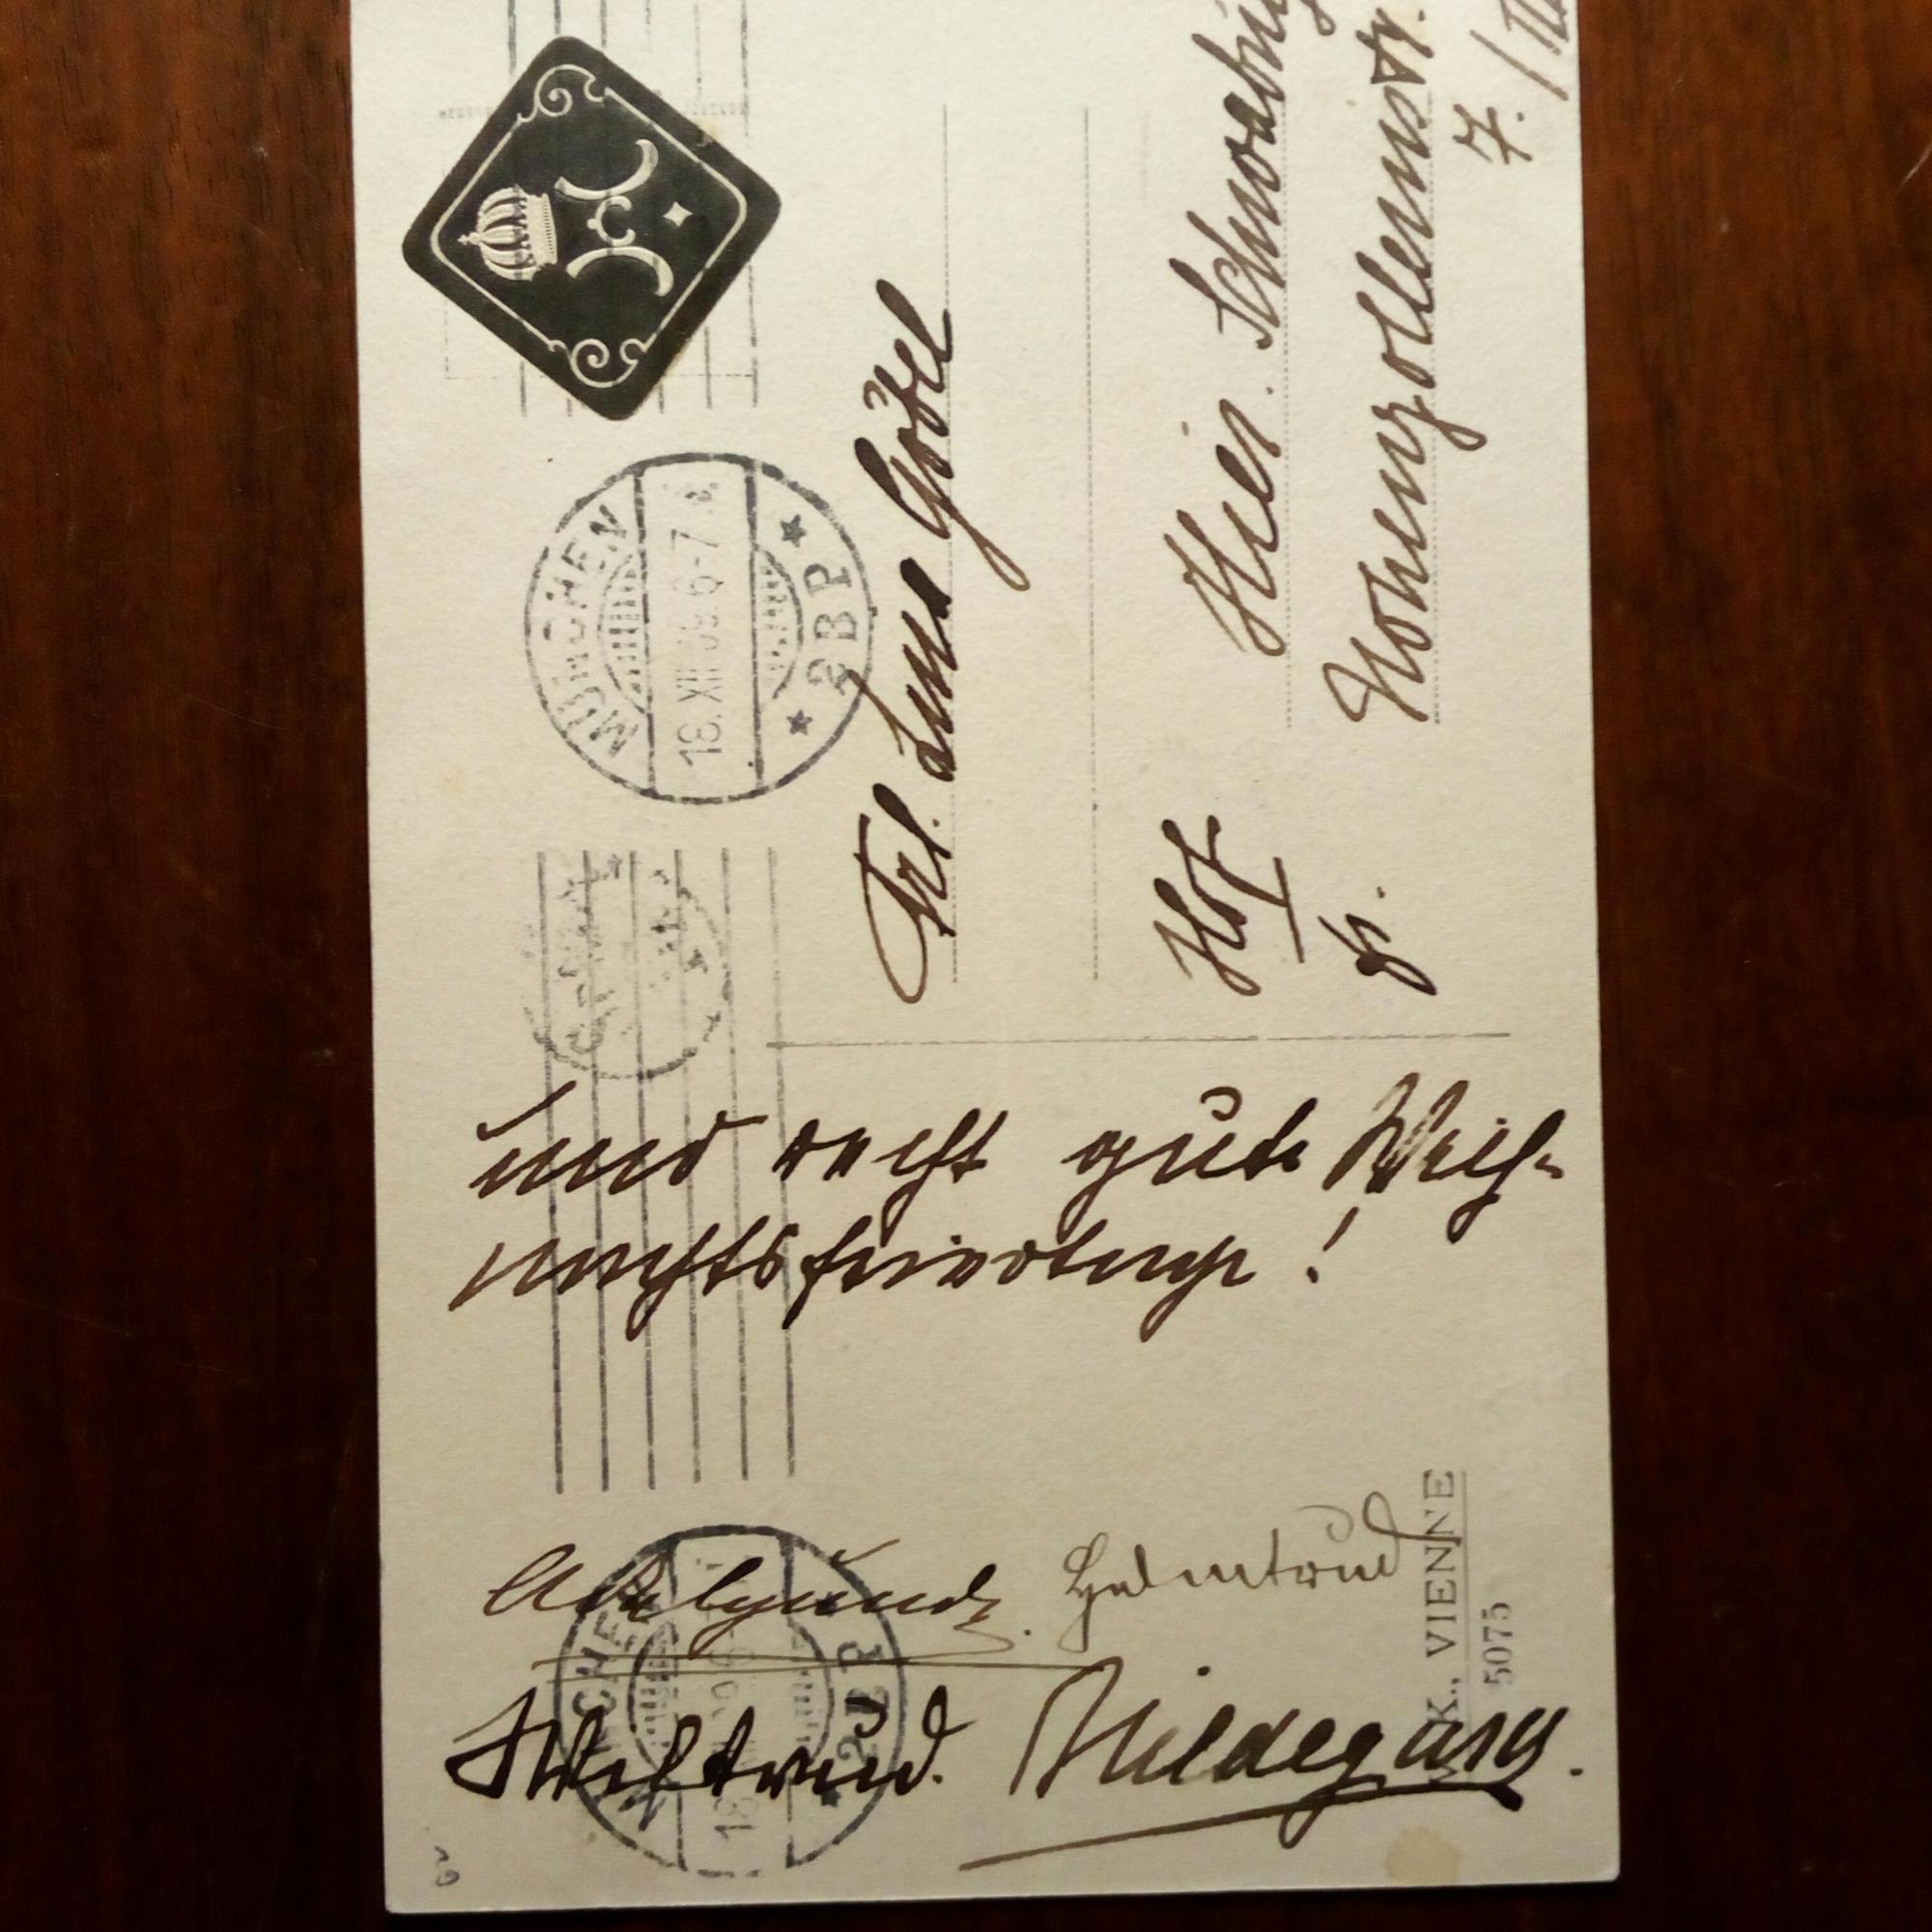 MÜNCHEN
18.XII.09. 6-7
* 2 B.P. *
Frl. Gödel
Hof Hier. Schwabing
Hohenzollernstr.
7./III
und recht gute Weih-
nachtsfeiertage!
Adelgunde. Helmtrud
Wiltrud. Hildegard.
K., VIENNE
5075